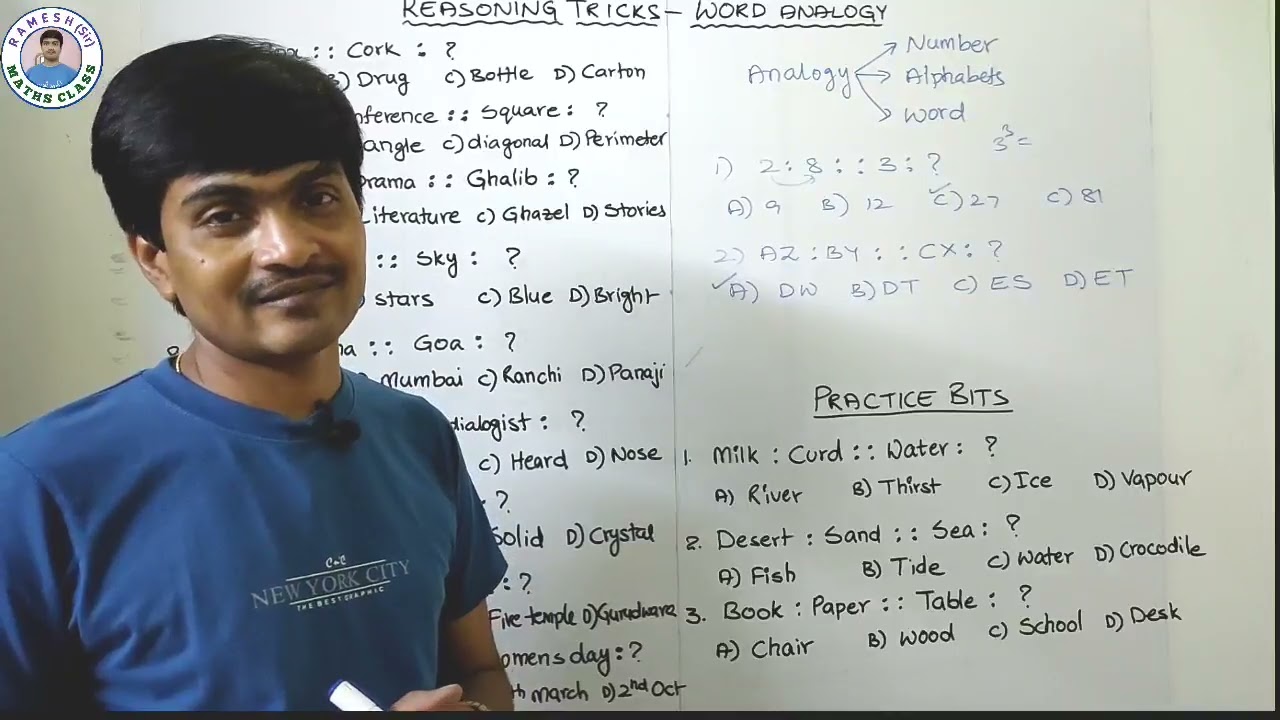 RAMESH (Sir)
MATHS CLASS
REASONING TRICKS – WORD ANALOGY
:: Cork : ?
B) Drug C) Bottle D) Carton
:: Square : ?
C) diagonal D) Perimeter
:: Ghalib : ?
Literature C) Ghazel D) Stories
:: Sky : ?
stars C) Blue D) Bright
:: Goa : ?
Mumbai C) Ranchi D) Panaji
: ?
C) Heard D) Nose
: ?
Solid D) Crystal
: ?
Fire temple D) Gurudwara
day : ?
march D) 2nd Oct
Analogy
Number
Alphabets
Word
3³ =
1) 2 : 8 : : 3 : ?
A) 9 B) 12 C) 27 C) 81
2) AZ : BY : : CX : ?
A) DW B) DT C) ES D) ET
PRACTICE BITS
1. Milk : Curd :: Water : ?
A) River B) Thirst C) Ice D) Vapour
2. Desert : Sand :: Sea : ?
A) Fish B) Tide C) Water D) Crocodile
3. Book : Paper :: Table : ?
A) Chair B) Wood C) School D) Desk
CNC
NEW YORK CITY
THE BEST GRAPHIC